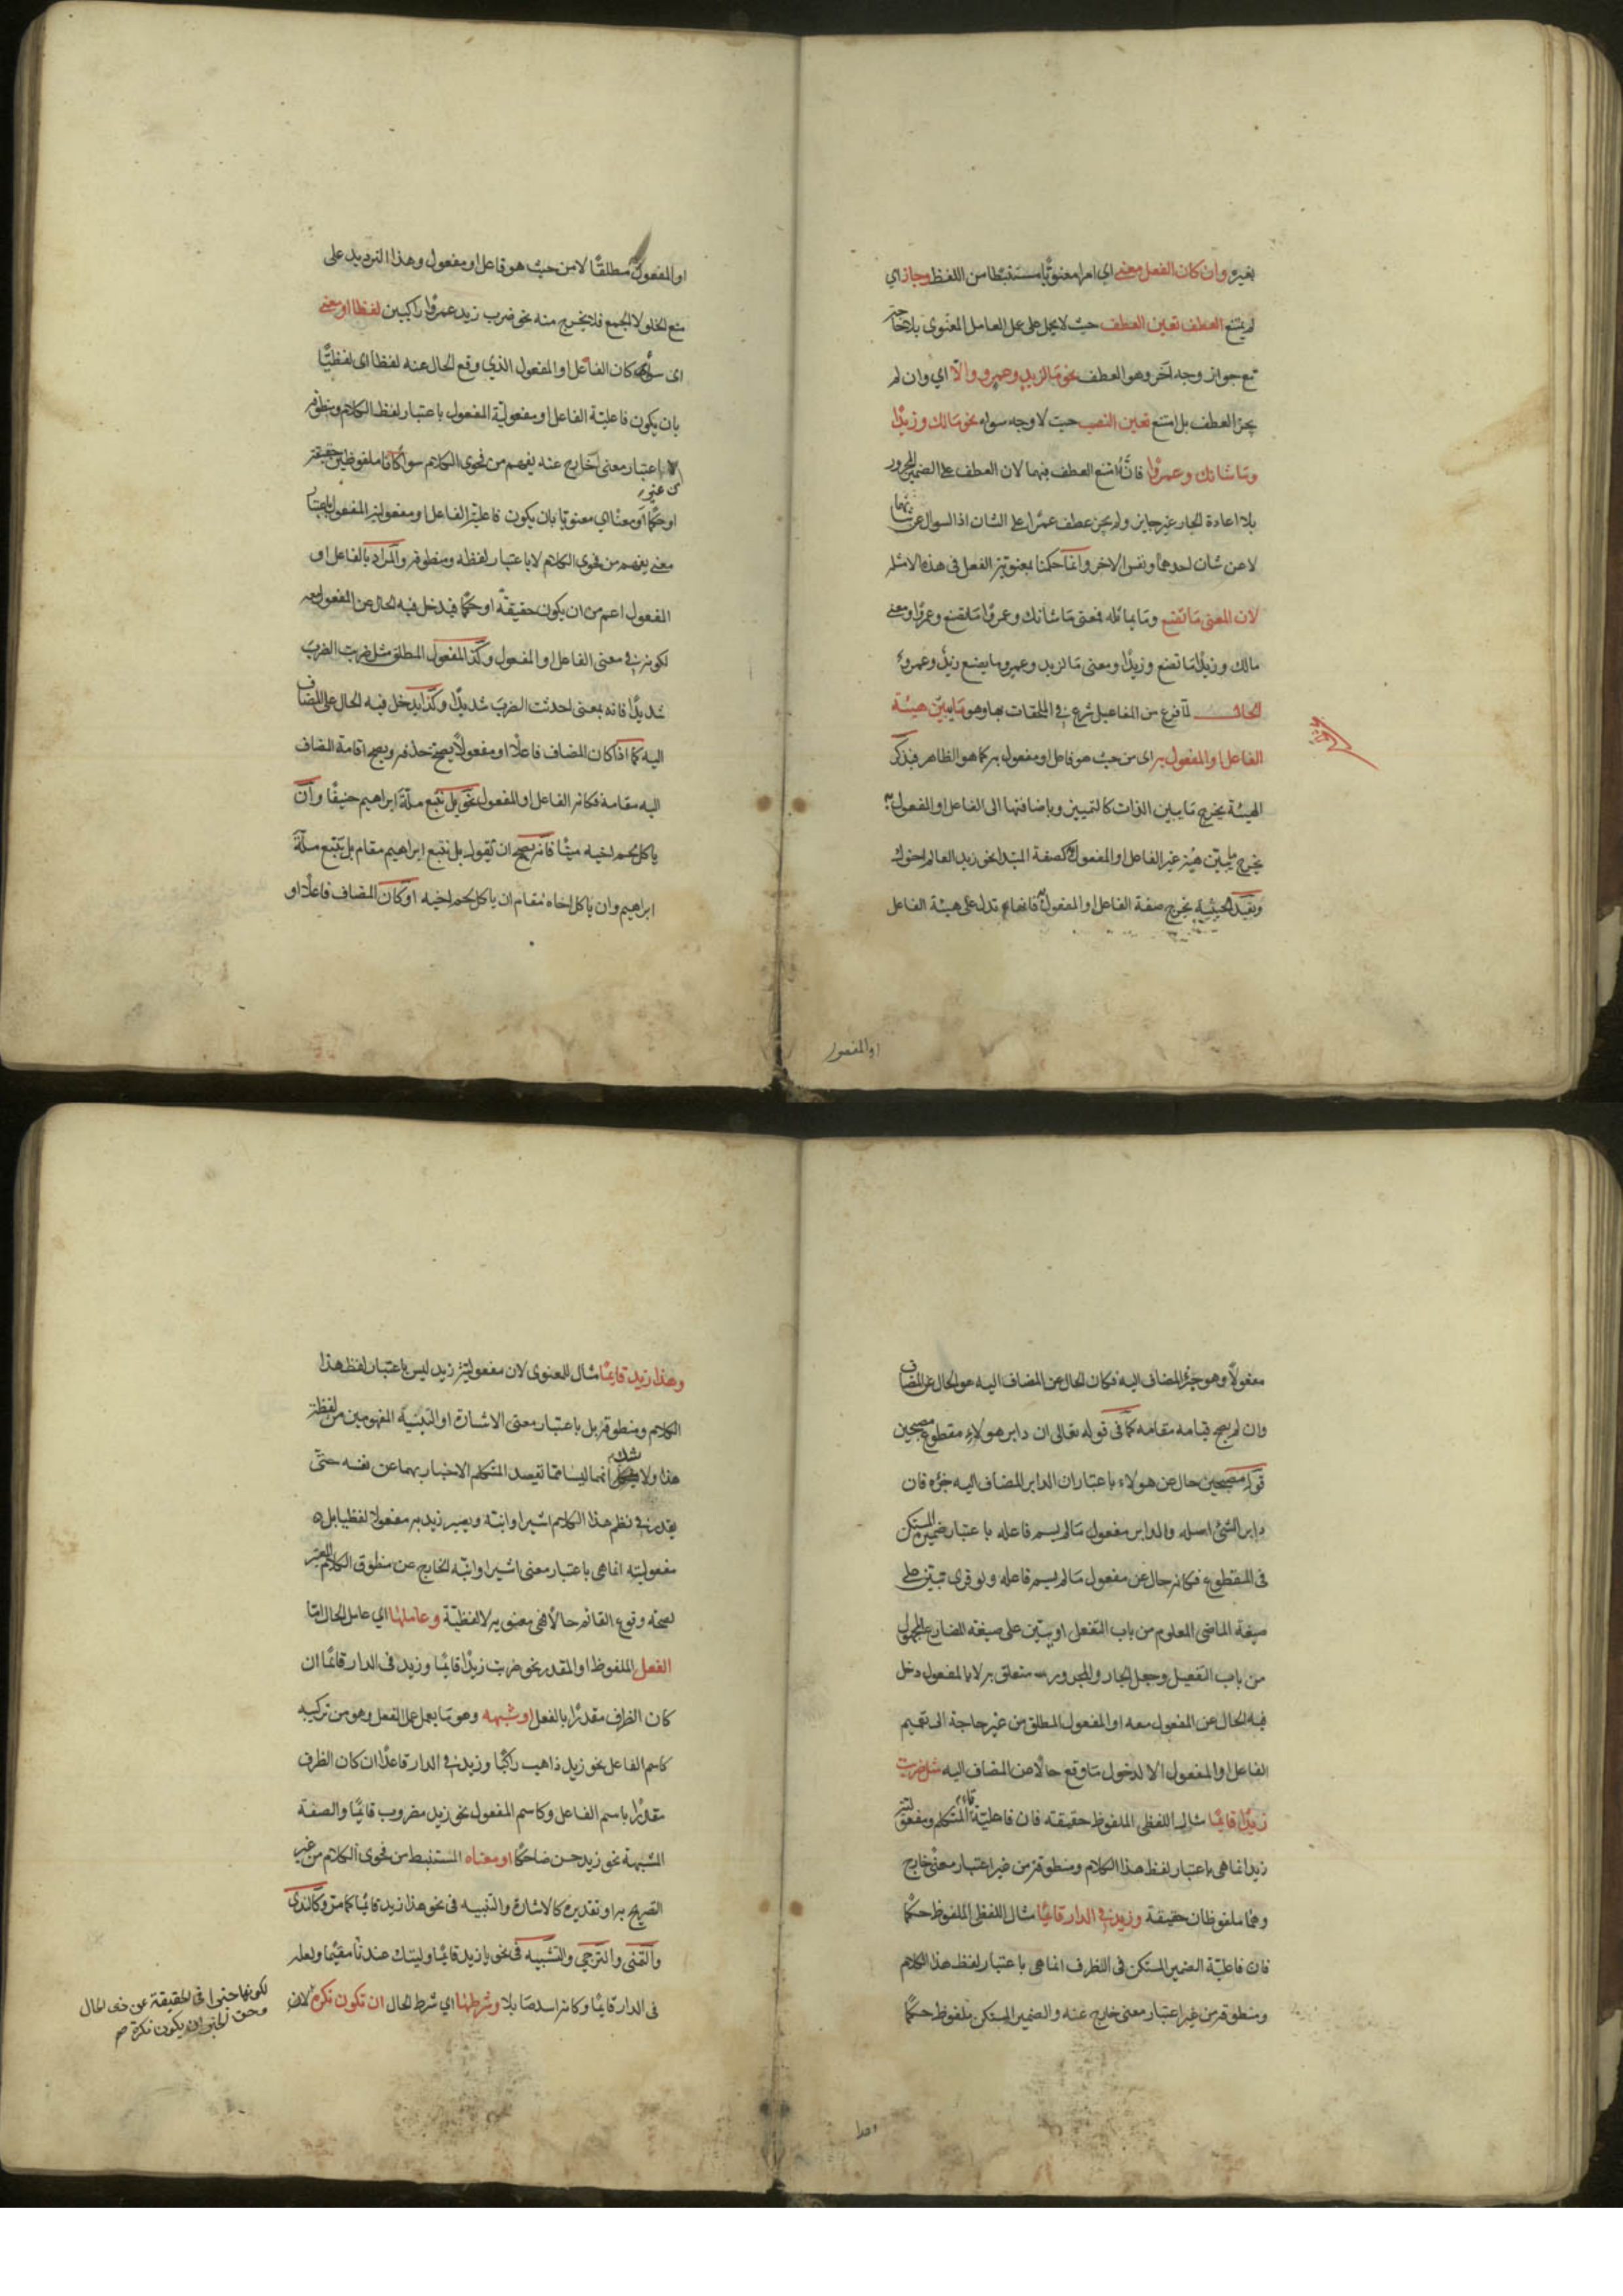 بغيره وان كان الفعل معنى اي امرا معنويّا مستنبطا من اللفظ وجاز اي
لم يمتنع العطف تعين العطف حيث لا يحمل على عمل العامل المعنوى بلا حاجة
مع جواز وجه آخر وهو العطف نحو ما لزيد وعمرو والّا اي وان لم
يجز العطف بل امتنع تعين النصب حيث لا وجه سواه نحو مالك وزيدًا
وما شانك وعمروًا فانّه امتنع العطف فيهما لان العطف على الضمير المجرور
بلا اعادة الجار غير جايز ولم يجز عطف عمرًا على الشان اذ السوال عن شانهما
لا عن شان احدهما ونفس الاخر وانما حكمنا بمعنوية الفعل فى هذه الامثلة
لان المعنى ما تصنع وما يماثله فمعنى ما شانك وعمروًا ما تصنع وعمروًا ومعنى
مالك وزيدًا ما تصنع وزيدًا ومعنى ما لزيد وعمرو ما يصنع زيدٌ وعمروٌ
الحال لمّا فرغ من المفاعيل شرع في الملحقات بها وهو ما يبيّن هيئة
الفاعل او المفعول به اى من حيث هو فاعل او مفعول به كما هو الظاهر فبذكر
الهيئة يخرج ما يبين الذات كالتمييز وباضافتها الى الفاعل او المفعول به
يخرج ما يبيّن هيئة غير الفاعل او المفعول به كصفة المبتدا نحو زيد العالم اخوك
وبقيد الحيثية يخرج صفة الفاعل او المفعول به فانها تدل على هيئة الفاعل
او المفعول
او المفعول مطلقًا لا من حيث هو فاعل او مفعول وهذا الترديد على
منع الخلو لا الجمع فلا يخرج منه نحو ضرب زيد عمروًا راكبين لفظا او معنى
اى سواء كان الفاعل او المفعول الذي وقع الحال عنه لفظا اى لفظيًّا
بان يكون فاعلية الفاعل او مفعولية المفعول باعتبار لفظ الكلام ومنطوقه
من غير
لا باعتبار معنى خارج عنه يفهم من فحوى الكلام سواء كانا ملفوظين حقيقة
او حكمًا او معنًا اي معنويّا بان يكون فاعلية الفاعل او مفعولية المفعول باعتبار
معنى يفهم من فحوى الكلام لا باعتبار لفظه ومنطوقه والمراد بالفاعل او
المفعول اعم من ان يكون حقيقةً او حكمًا فيدخل فيه الحال عن المفعول معه
لكونه في معنى الفاعل او المفعول وكذا المفعول المطلق مثل ضربت الضرب
شديدًا فانه بمعنى احدثت الضرب شديدًا وكذا يدخل فيه الحال عن المضاف
اليه كما اذا كان المضاف فاعلًا او مفعولًا يصح حذفه ويصح اقامة المضاف
اليه مقامه فكانه الفاعل او المفعول نحو بل نتبع ملّة ابراهيم حنيفًا وان
ياكل لحم اخيه ميتًا فانه يصح ان تقول بل نتبع ابراهيم مقام بل نتبع ملّة
ابراهيم وان ياكل اخاه مقام ان ياكل لحم اخيه او كان المضاف فاعلًا او
مفعولًا وهو جزء المضاف اليه فكان الحال عن المضاف اليه هو الحال عن المضاف
وان لم يصح قيامه مقامه كما فى قوله تعالى ان دابر هولاء مقطوع مصبحين
قوله مصبحين حال عن هولاء باعتبار ان الدابر المضاف اليه جزؤه فان
دابر الشئ اصله والدابر مفعول ما لم يسم فاعله باعتبار ضميره المستكن
فى المقطوع فكانه حال عن مفعول ما لم يسم فاعله ولو قرى تبيّن على
صيغة الماضى المعلوم من باب التفعل او يبيّن على صيغة المضارع المجهول
من باب التفعيل وجعل الجار والمجرور متعلق به لا بالمفعول دخل
فيه الحال عن المفعول معه او المفعول المطلق من غير حاجة الى تعميم
الفاعل او المفعول الا لدخول ما وقع حالًا عن المضاف اليه مثل ضربت
زيدًا قايمًا مثال اللفظى الملفوظ حقيقة فان فاعلية تاء المتكلم ومفعولية
زيد انما هى باعتبار لفظ هذا الكلام ومنطوقه من غير اعتبار معنى خارج
وهما ملفوظان حقيقة وزيد في الدار قائمًا مثال اللفظى الملفوظ حكمًا
فان فاعليّة الضمير المستكن فى الظرف انما هى باعتبار لفظ هذا الكلام
ومنطوقه من غير اعتبار معنى خارج عنه والضمير المستكن ملفوظ حكمًا
وهذا زيد قايمًا مثال للمعنوى لان مفعولية زيد ليس باعتبار لفظ هذا
الكلام ومنطوقه بل باعتبار معنى الاشارة او التنبيه المفهومين من لفظة
هذا ولا شك انهما ليسا مما تقصد المتكلم الاخبار بهما عن نفسه حتى
يقدر في نظم هذا الكلام اشير او انبّه ويصير زيد به مفعولا لفظيا بل
مفعوليته انما هى باعتبار معنى اشير او انبّه الخارج عن منطوق الكلام المعتبر
لصحة وقوع القائم حالًا فهى معنويه لا لفظيّة وعاملها اي عامل الحال امّا
الفعل الملفوظ او المقدر نحو ضربت زيدًا قايمًا وزيد فى الدار قائمًا ان
كان الظرف مقدرًا بالفعل او شبهه وهو ما يعمل عمل الفعل وهو من تركيبه
كاسم الفاعل نحو زيد ذاهب راكبًا وزيد في الدار قاعدًا ان كان الظرف
مقدرًا باسم الفاعل وكاسم المفعول نحو زيد مضروب قايمًا والصفة
المشبهة نحو زيد حسن ضاحكًا او معناه المستنبط من فحوى الكلام من غير
التصريح به او تقديره كالاشارة والتنبيه فى نحو هذا زيد قايمًا كما مرّ وكالندى
والتمنى والترجي والتشبيه فى نحو يا زيد قايمًا وليتك عندنا مقيمًا ولعله
فى الدار قايمًا وكانه اسد صايلا وشرطها اي شرط الحال ان تكون نكرة لان
وحق الخبر ان يكون نكرة صح